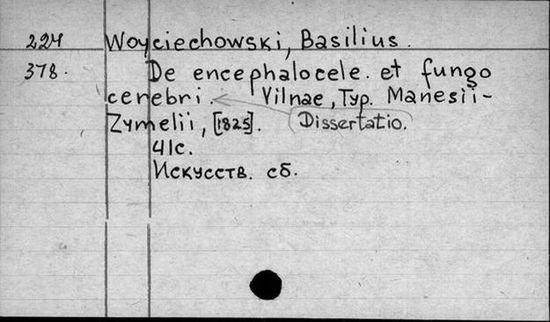 224 Woyciechowski, Basilius.
378. De encephalocele et fungo
cerebri. Vilnae, Typ. Manesii-
Zymelii, [1825]. Dissertatio.
41c.
Искусств. сб.